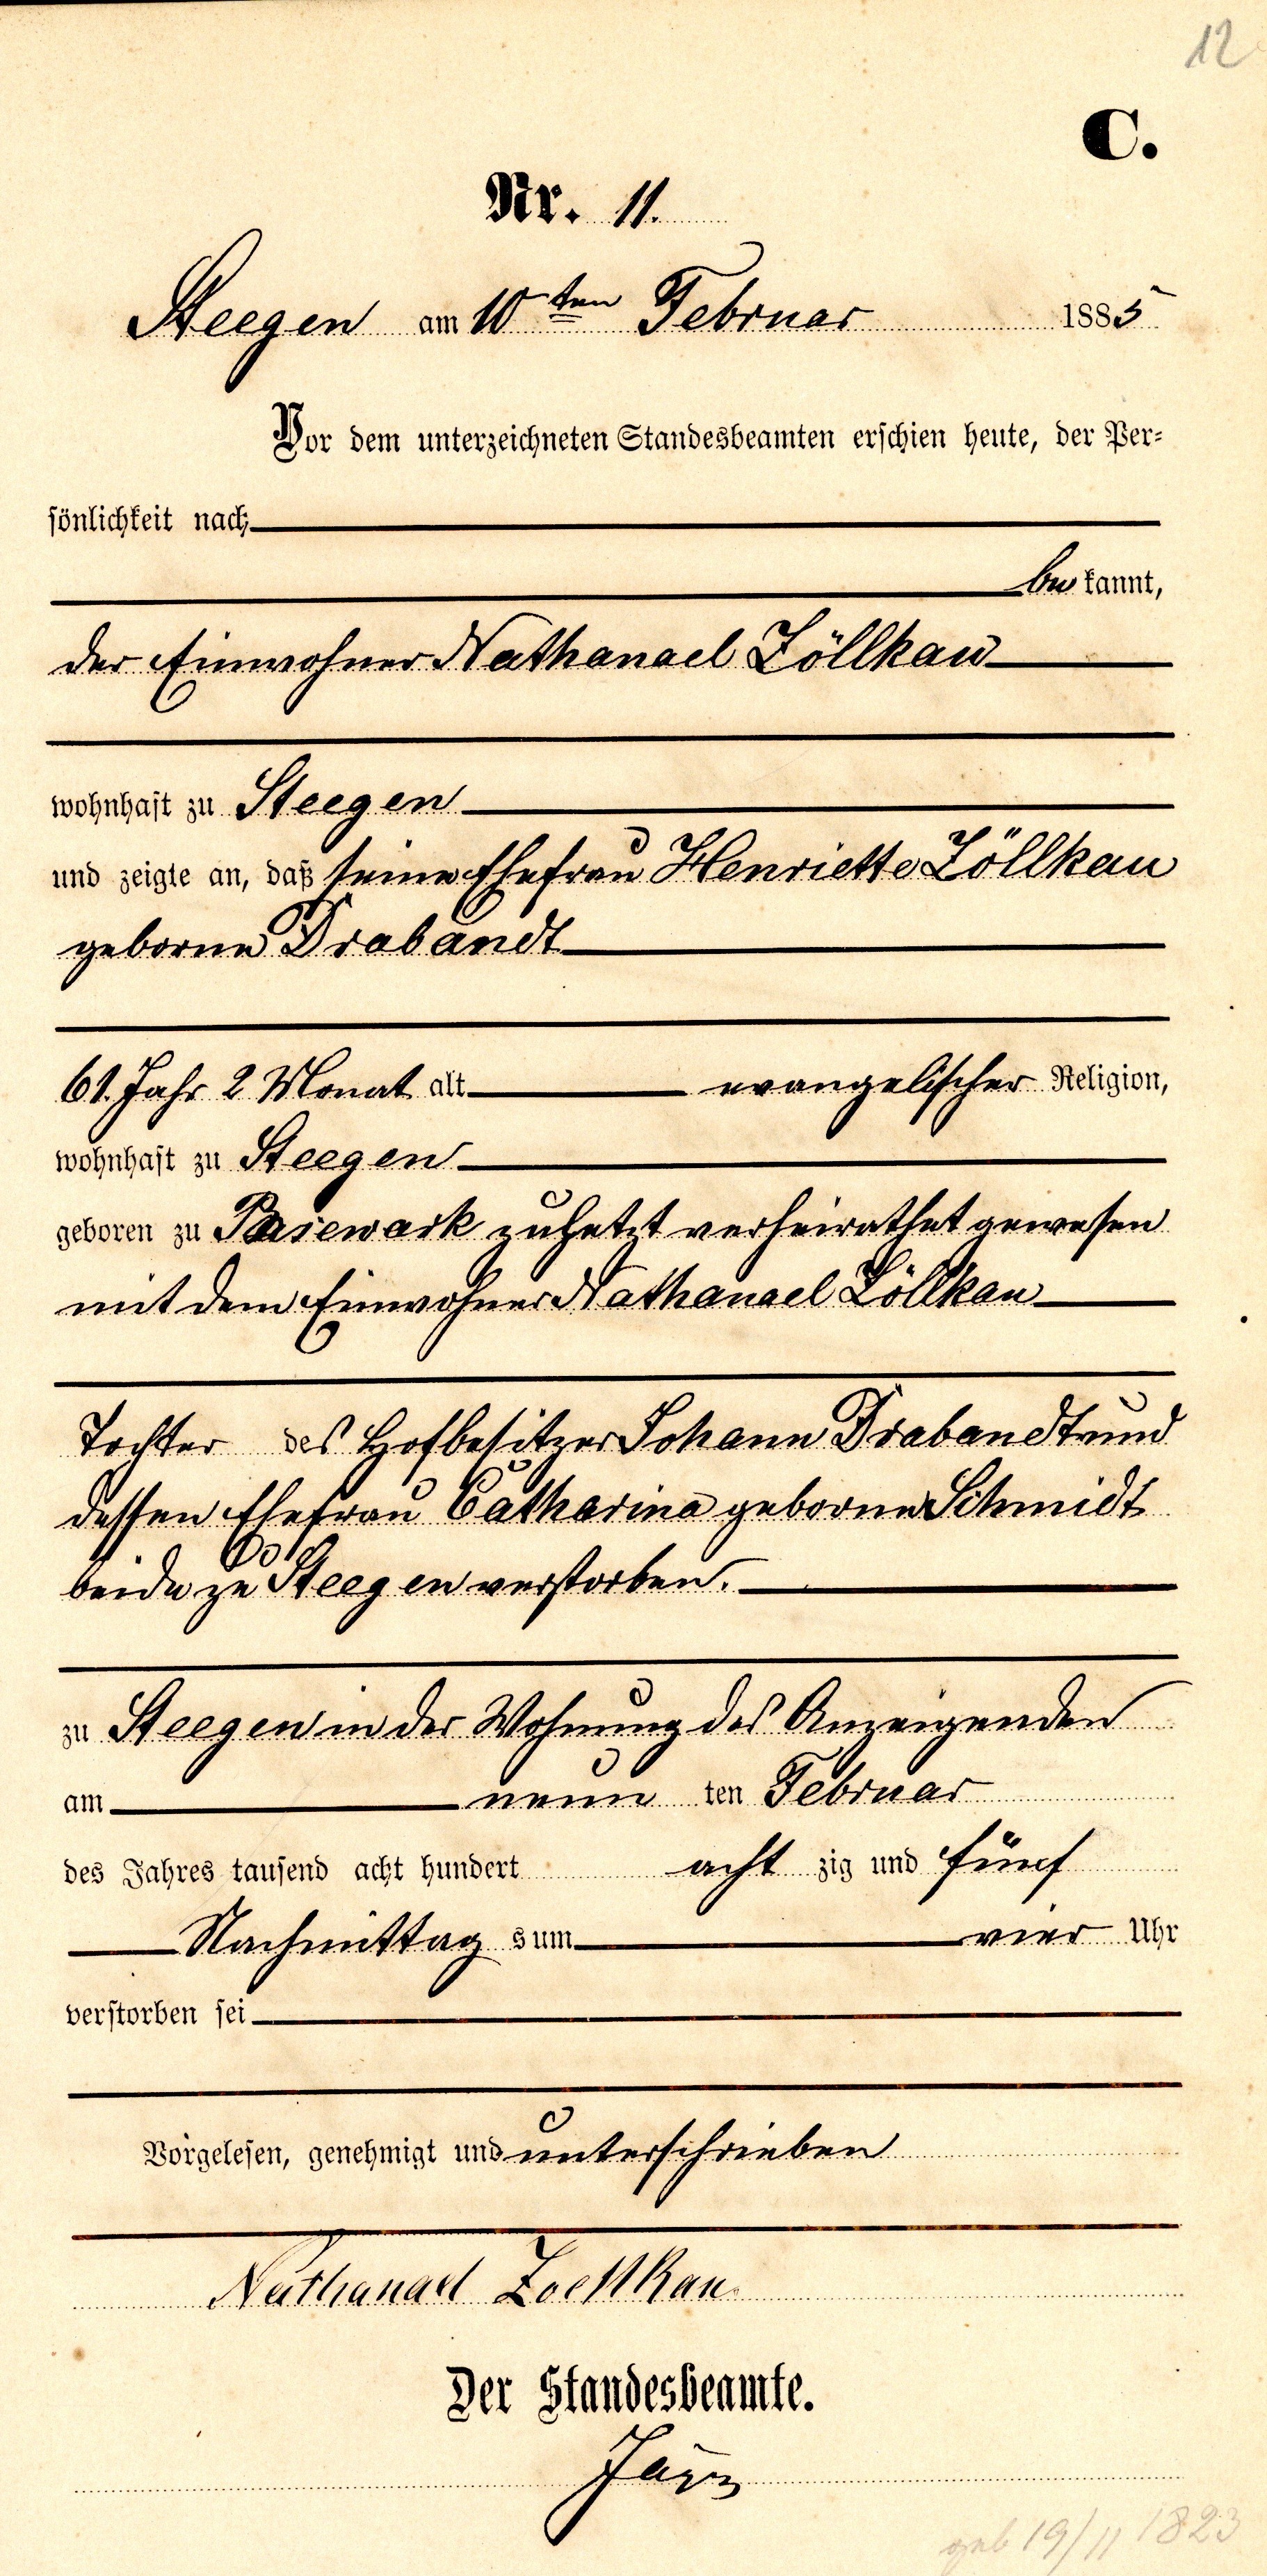 12
C.
Nr. 11.
Steegen am 10ten Februar 1885
Vor dem unterzeichneten Standesbeamten erschien heute, der Per-
sönlichkeit nach
be kannt,
der Einwohner Nathanael Zöllkau
wohnhaft zu Steegen
und zeigte an, daß seine Ehefrau Henriette Zöllkau
geborne Drabandt
61. Jahr 2 Monat alt evangelischer Religion,
wohnhaft zu Steegen
geboren zu Pasewark zuletzt verheirathet gewesen
mit dem Einwohner Nathanael Zöllkau
Tochter des Hofbesitzer Johann Drabandt und
dessen Ehefrau Catharina geborne Schmidt
beide zu Steegen verstorben.
zu Steegen in der Wohnung des Anzeigenden
am neun ten Februar
des Jahres tausend acht hundert acht zig und fünf
Nachmittag s um vier Uhr
verstorben sei
Vorgelesen, genehmigt und unterschrieben
Nathanael Zoellkau
Der Standesbeamte.
geb 19/11 1823